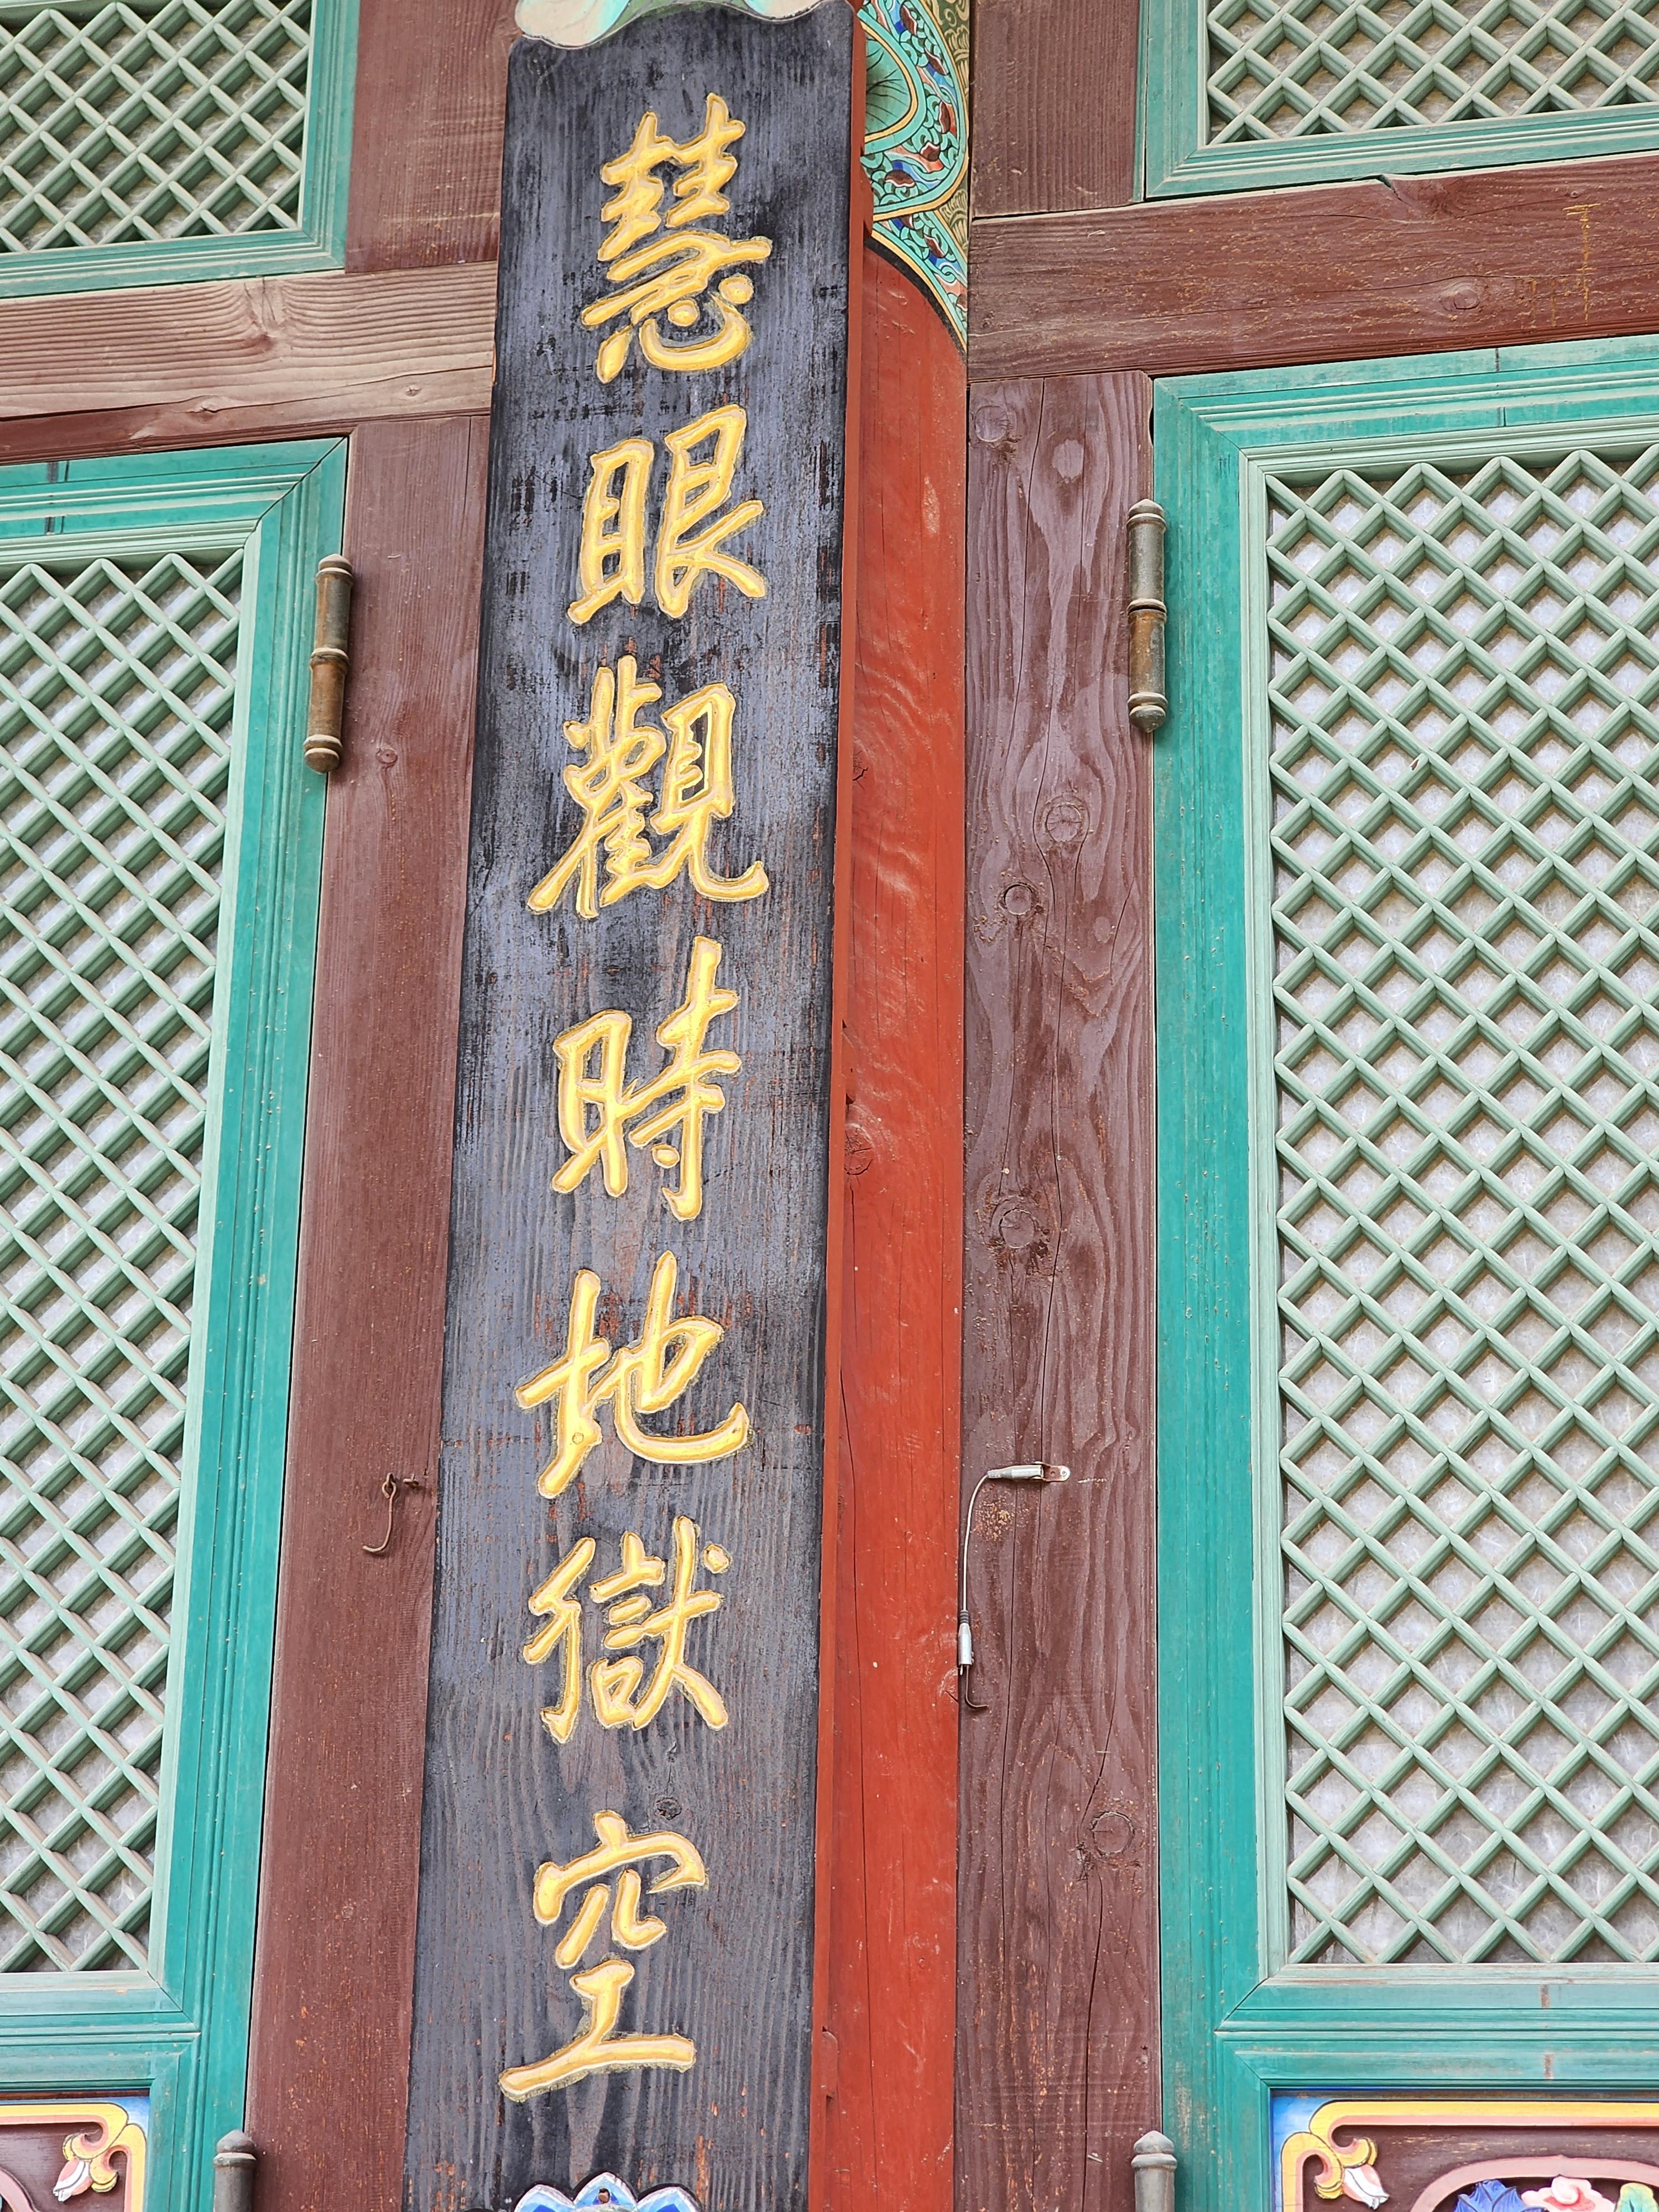 慧眼觀時地獄空